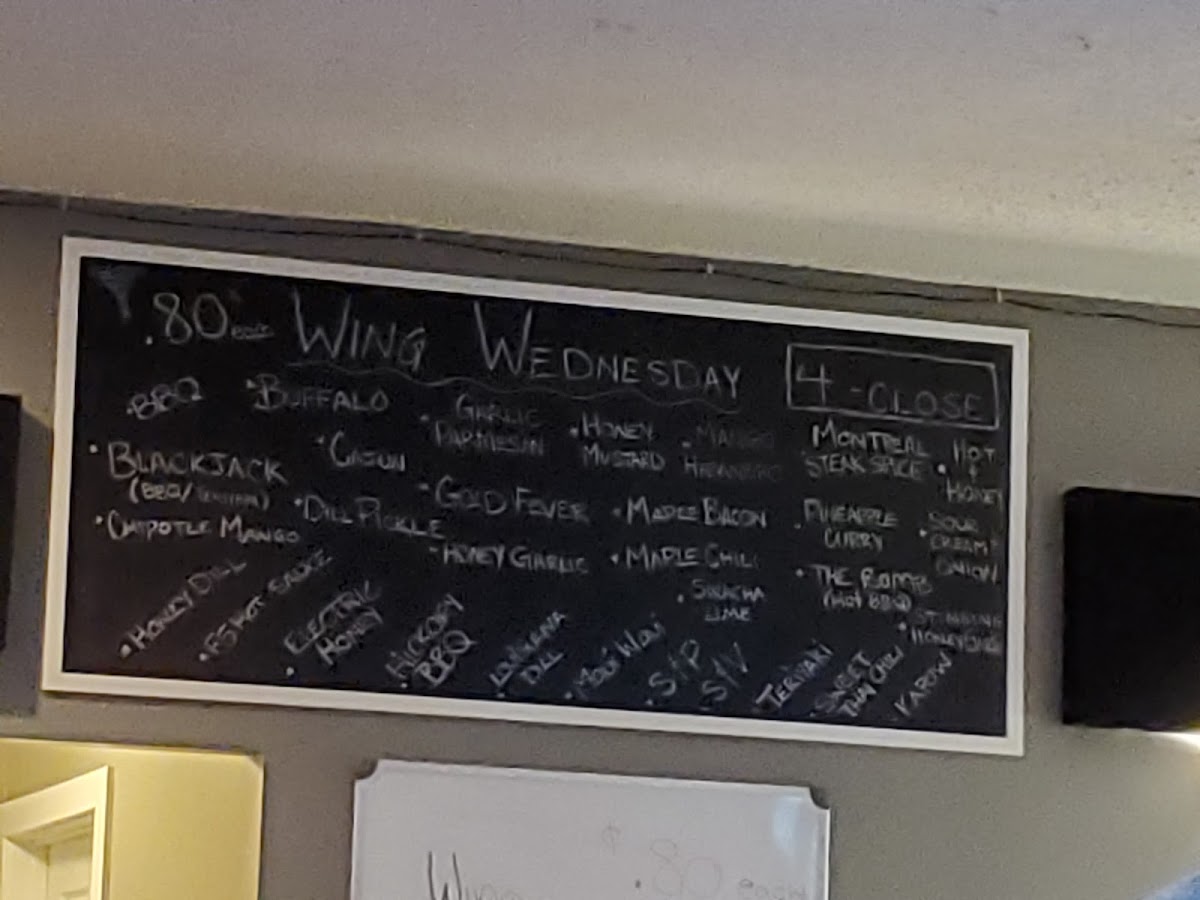 .80 each WING WEDNESDAY 4 - CLOSE
• BBQ
• BLACKJACK
(BBQ/TERIYAKI)
• CHIPOTLE MANGO
• BUFFALO
• CAJUN
• DILL PICKLE
• GARLIC
PARMESAN
• GOLD FEVER
• HONEY GARLIC
• HONEY
MUSTARD
• MAPLE BACON
• MAPLE CHILI
• SIRACHA
LIME
• MANGO
HABANERO
MONTREAL
STEAK SPICE
• PINEAPPLE
CURRY
• THE BOMB
(HOT BBQ)
• HOT
&
HONEY
• SOUR
CREAM &
ONION
• HONEY DILL
• HOT SAUCE
• ELECTRIC
HONEY
• HICKORY
BBQ
• LOUISIANA
DILL
• MAUI WOWI
• S+P
S+V
• TERIYAKI
• SWEET
THAI CHILI
.80 each